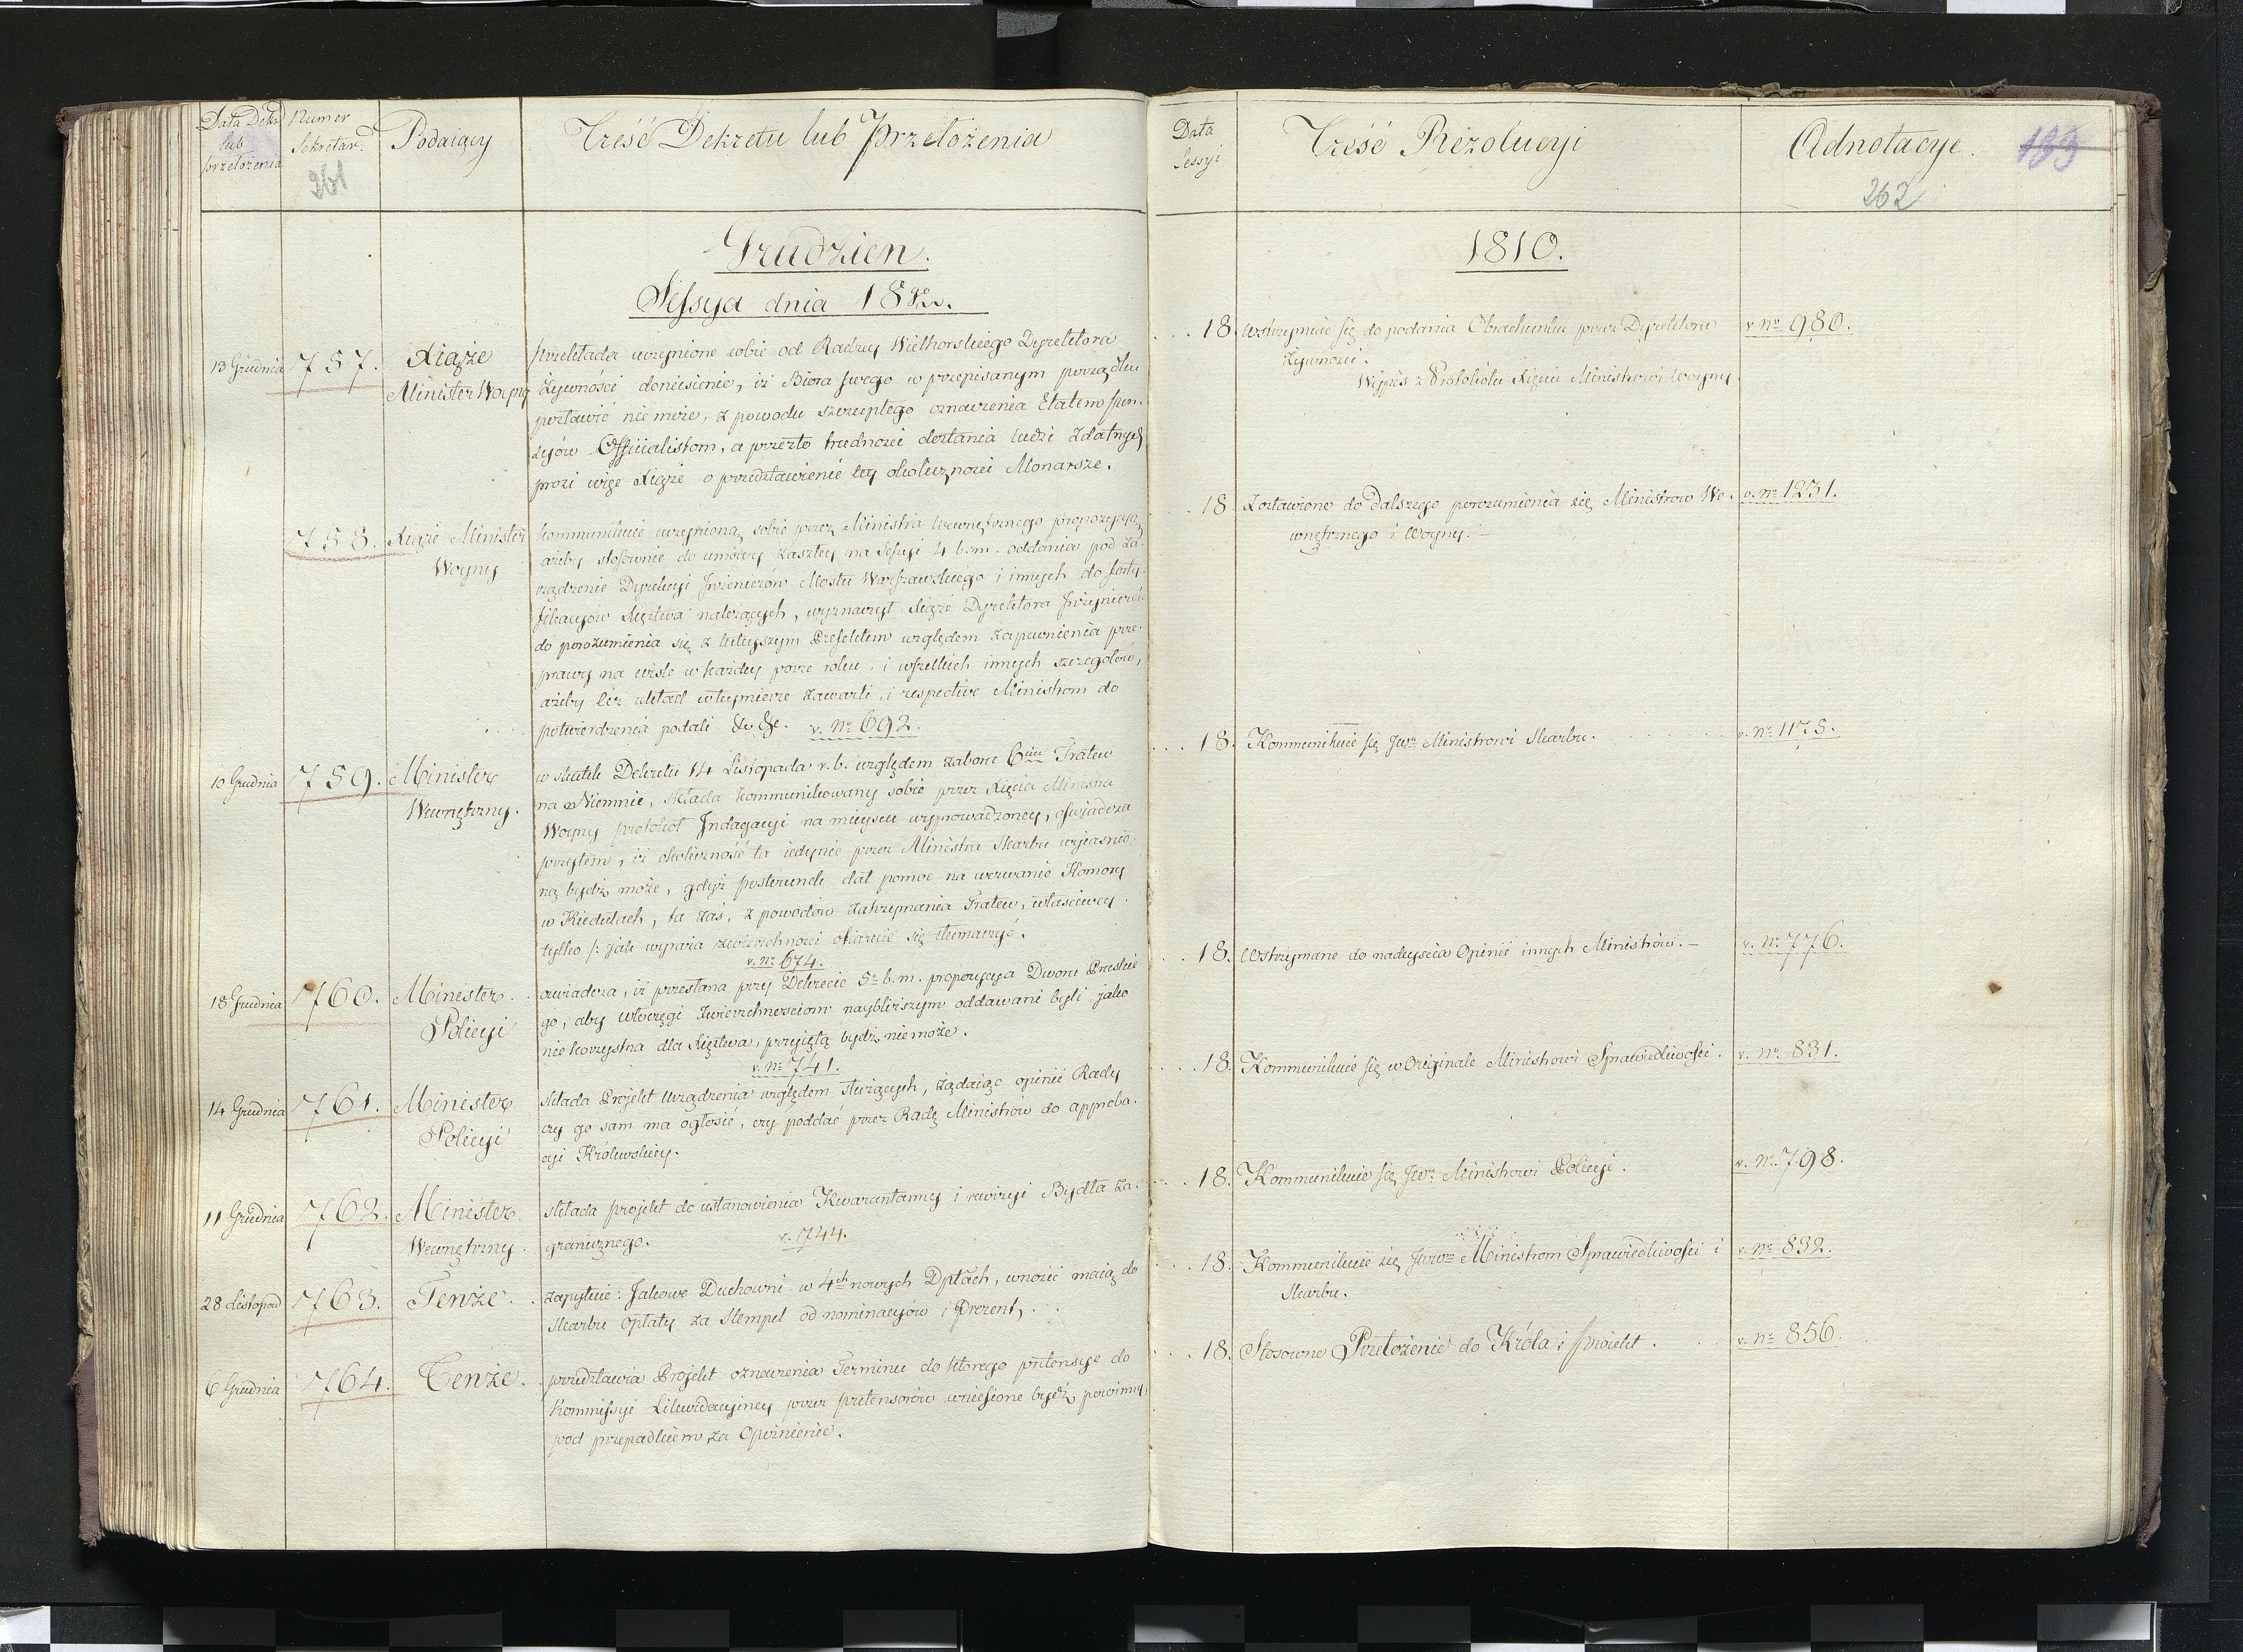 Data Dekr.
lub
przełożenia
Numer
Sekretar.
261
Podaiący
Treść Dekretu lub Przełożenia
Grudzien.
Sessya dnia 18go.
13 Grudnia
757.
Xiąże
Minister Woyny
przekłada uczynione sobie od Radcy Wielhorskiego Dyrektora
żywności doniesienie, iż Biora swego w przepisanym porządku
postawić nie może, z powodu szczupłego oznaczenia Etatem pen-
syów Officialistom, a przezto trudności dostania ludzi zdatnych
prosi więc Xiąże o przedstawienie tey okoliczności Monarsze.
758.
Xiąże Minister
Woyny
kommunikuie uczynioną sobie przez Ministra Wewnętrznego propozycyą
ażeby stosownie do umowy zaszłey na Sessyi 4 b.m. oddania pod za-
rządzenie Dyrekcyi Inzenierów Mostu Warszawskiego i innych do forty-
fikacyów Xięstwa należących, wyznaczył Xiąże Dyrektora Inżynierów
do porozumienia się z tuteyszym Prefektem względem zapewnienia prze-
prawy na wiśle w każdey porze roku, i wszelkich innych szczegołów,
ażeby też układ w tey mierze zawarli, i respective Ministrom do
potwierdzenia podali &c &c. v. No 692.
10 Grudnia
759.
Minister
Wewnętrzny.
w skutek Dekretu 14 Listopada r.b. względem zaboru 6ciu Tratew
na Niemnie, składa kommunikowany sobie przez Xięcia Ministra
Woyny protokoł Indagacyi na mieyscu wyprowadzoney, oświadcza
przytem, iż okoliczność ta iedynie przez Ministra Skarbu wyiaśnio-
ną bydź może, gdyż posterunek dał pomoc na wezwanie Komory
w Kiedulach, ta zaś, z powodów zatrzymania Tratew, właściwey
tylko /: jak wyraża zwierzchności ofiaruie się tłumaczyć.
v. No 674.
18 Grudnia
760.
Minister
Policyi
oswiadcza, iż przesłana przy Dekrecie 5o b.m. propozycya Dworu Pruskie-
go, aby włóczęgi zwierzchnosciom naybliższym oddawani byli jako
nie korzystna dla Xięstwa, przyiętą bydź nie może.
v. No 741.
14 Grudnia
761.
Minister
Policyi
składa Projekt urządzenia względem służących, żądaiąc opinii Rady
czy go sam ma ogłosić, czy poddać przez Radę Ministrów do approba-
cyi Królewskiey.
11 Grudnia
762.
Minister
Wewnętrzny.
składa projekt do ustanowienia Kwarantanny i rewizyi Bydła za-
granicznego. v. 744.
28 Listopad
763.
Tenże.
zapytuie: Jakowe Duchowni w 4ch nowych Dptach, wnosić maią do
Skarbu opłaty za Stempel od nominacyów i Prezent,
6 Grudnia
764.
Tenże.
przedstawia Projekt oznaczenia Terminu do którego pretensye do
Kommissyi Likwidacyiney przez pretensorów wniesione bydź powinny,
pod przepadkiem za Opóznienie.
Data
Sessyi
Treść Rezolucyi
Adnotacye.
133
262
1810.
18. Wstrzymuie się do podania Obrachunku przez Dyrektora
żywności.
Wypis z Protokółu Xięciu Ministrowi Woyny.
v. No 980.
18. Zostawione do dalszego porozumienia się Ministrow We-
wnętrznego i Woyny.
v. No 1231.
18. Kommunikuie się Jwu Ministrowi Skarbu.
v. No 1175.
18. Wstrzymane do nadeyścia Opinii innych Ministrów.
v. No 776.
18. Kommunikuie się w Originale Ministrowi Sprawiedliwości.
v. No 831.
18. Kommunikuie się Jwu Ministrowi Policyi.
v. No 798.
18. Kommunikuie się Jww Ministrom Sprawiedliwości i
Skarbu.
v. No 832.
18. Stosowne Przełożenie do Króla i projekt.
v. No 856.